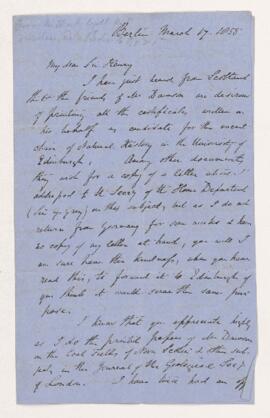 Berlin March 17. 1855
My dear Sir Henry
I have just heard from Scotland
that the friends of Mr Dawson are desirous
of presenting all the certificates written in
his behalf as candidate for the vacant
chair of Natural History in the University of
Edinburgh. Among other documents
they wish for a copy of a letter which I
addressed to the Secry of the Home Departmt
(Sir G. Grey) on this subject, but as I do not
return from Germany for some weeks & have
no copy of my letter at hand, you will I
am sure have the kindness, when you have
read this, to forward it to Edinburgh if
you think it would serve the same pur
pose.
I know that you appreciate highly
as I do the printed papers of Mr Dawson
on the Coal Fields of Nova Scotia & other sub
jects, in the Journal of the Geological Socy
of London. I have twice had an op